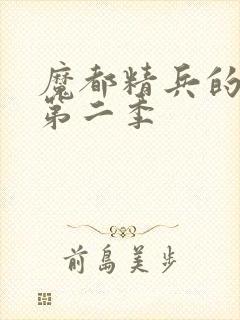 魔都精兵的
第二季
前島美步